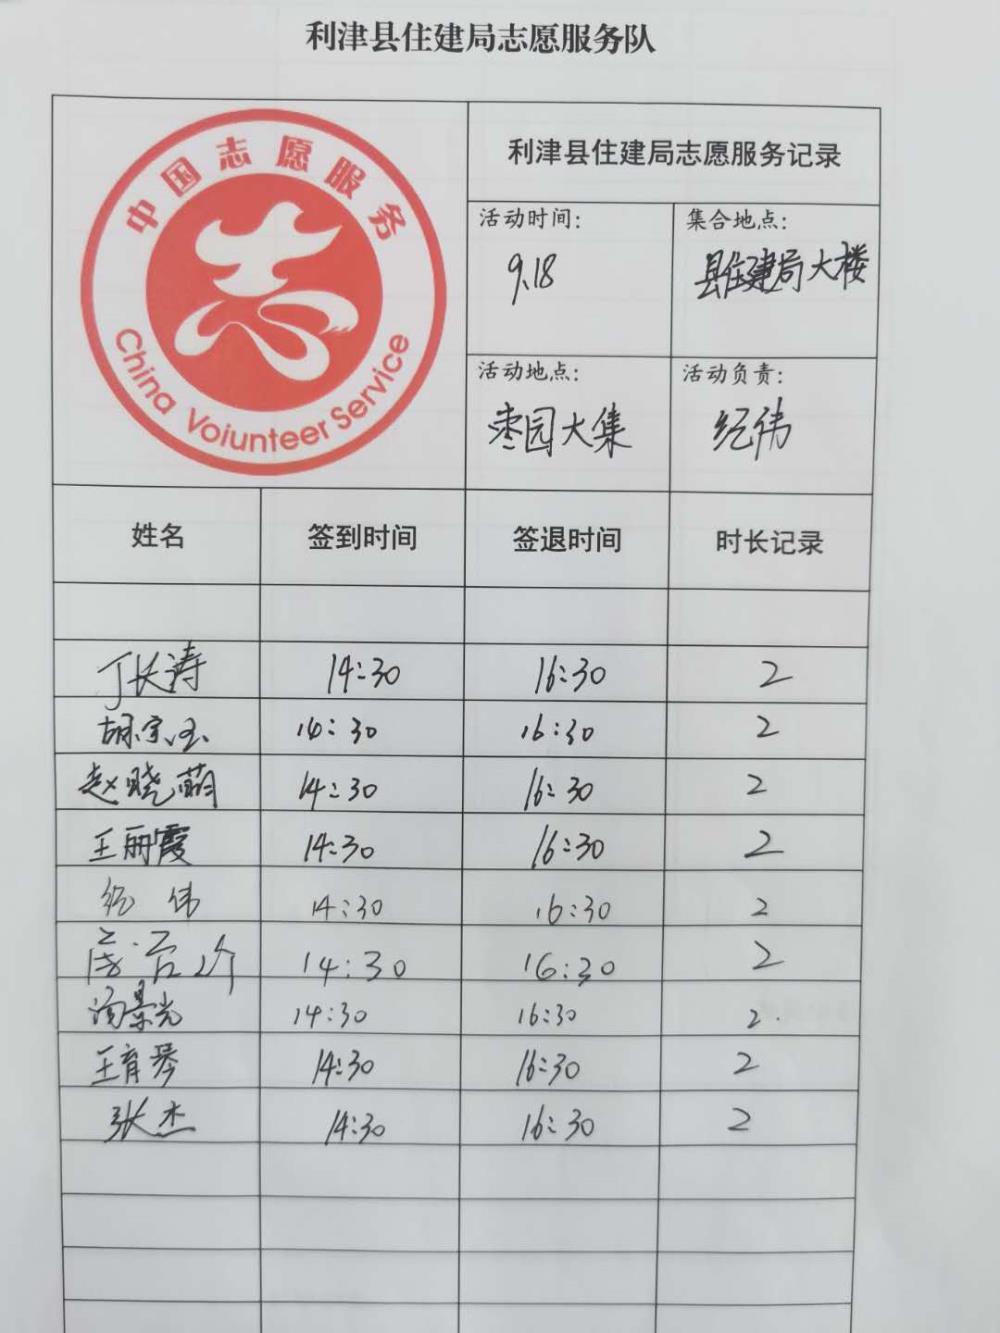 利津县住建局志愿服务队
中国志愿服务
China Voiunteer Service
利津县住建局志愿服务记录
活动时间: 集合地点:
9.18 县住建局大楼
活动地点: 活动负责:
枣园大集 纪伟
姓名 签到时间 签退时间 时长记录
丁长涛 14:30 16:30 2
胡宗玉 14:30 16:30 2
赵晓萌 14:30 16:30 2
王丽霞 14:30 16:30 2
纪伟 14:30 16:30 2
14:30 16:30 2
汤景光 14:30 16:30 2
王育琴 14:30 16:30 2
张杰 14:30 16:30 2